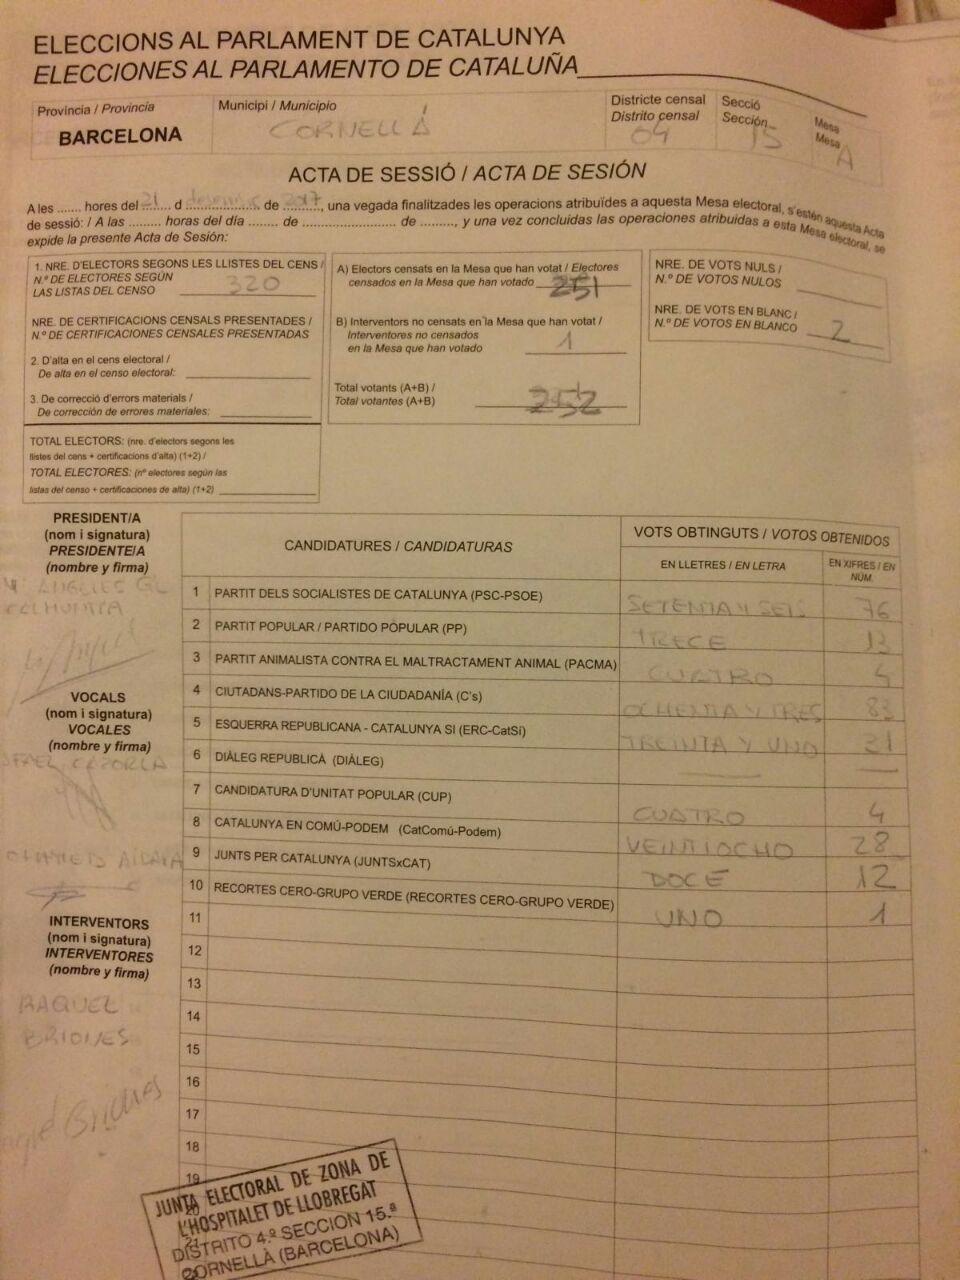 ELECCIONS AL PARLAMENT DE CATALUNYA
ELECCIONES AL PARLAMENTO DE CATALUÑA
Provincia / Provincia
BARCELONA
Municipi / Municipio
CORNELLÀ
Districte censal
Distrito censal
04
Secció
Sección
15
Mesa
Mesa
A
ACTA DE SESSIÓ / ACTA DE SESIÓN
A les ....... hores del 21 d desembre de 2017, una vegada finalitzades les operacions atribuïdes a aquesta Mesa electoral, s'estén aquesta Acta
de sessió: / A las ......... horas del día ........ de ......................... de ........, y una vez concluidas las operaciones atribuidas a esta Mesa electoral, se
expide la presente Acta de Sesión:
1. NRE. D'ELECTORS SEGONS LES LLISTES DEL CENS /
N.º DE ELECTORES SEGÚN
LAS LISTAS DEL CENSO 320
NRE. DE CERTIFICACIONS CENSALS PRESENTADES /
N.º DE CERTIFICACIONES CENSALES PRESENTADAS
2. D'alta en el cens electoral /
De alta en el censo electoral:
3. De correcció d'errors materials /
De corrección de errores materiales:
TOTAL ELECTORS: (nre. d'electors segons les
llistes del cens + certificacions d'alta) (1+2) /
TOTAL ELECTORES: (nº electores según las
listas del censo + certificaciones de alta) (1+2)
A) Electors censats en la Mesa que han votat / Electores
censados en la Mesa que han votado 251
B) Interventors no censats en la Mesa que han votat /
Interventores no censados
en la Mesa que han votado 1
Total votants (A+B) /
Total votantes (A+B) 252
NRE. DE VOTS NULS /
N.º DE VOTOS NULOS
NRE. DE VOTS EN BLANC /
N.º DE VOTOS EN BLANCO 2
PRESIDENT/A
(nom i signatura)
PRESIDENTE/A
(nombre y firma)
Mª ANGELES GIL
VOCALS
(nom i signatura)
VOCALES
(nombre y firma)
CAZORLA
INTERVENTORS
(nom i signatura)
INTERVENTORES
(nombre y firma)
RAQUEL
BRIONES
CANDIDATURES / CANDIDATURAS
VOTS OBTINGUTS / VOTOS OBTENIDOS
EN LLETRES / EN LETRA
EN XIFRES / EN NÚM.
1 PARTIT DELS SOCIALISTES DE CATALUNYA (PSC-PSOE) SETENTA Y SEIS 76
2 PARTIT POPULAR / PARTIDO POPULAR (PP) TRECE 13
3 PARTIT ANIMALISTA CONTRA EL MALTRACTAMENT ANIMAL (PACMA) CUATRO 4
4 CIUTADANS-PARTIDO DE LA CIUDADANÍA (C's) OCHENTA Y TRES 83
5 ESQUERRA REPUBLICANA - CATALUNYA SI (ERC-CatSí) TREINTA Y UNO 31
6 DIÀLEG REPUBLICÀ (DIÀLEG)
7 CANDIDATURA D'UNITAT POPULAR (CUP) CUATRO 4
8 CATALUNYA EN COMÚ-PODEM (CatComú-Podem) VEINTIOCHO 28
9 JUNTS PER CATALUNYA (JUNTSxCAT) DOCE 12
10 RECORTES CERO-GRUPO VERDE (RECORTES CERO-GRUPO VERDE) UNO 1
11
12
13
14
15
16
17
18
19
JUNTA ELECTORAL DE ZONA DE
L'HOSPITALET DE LLOBREGAT
DISTRITO 4.º SECCION 15.ª
CORNELLÀ (BARCELONA)